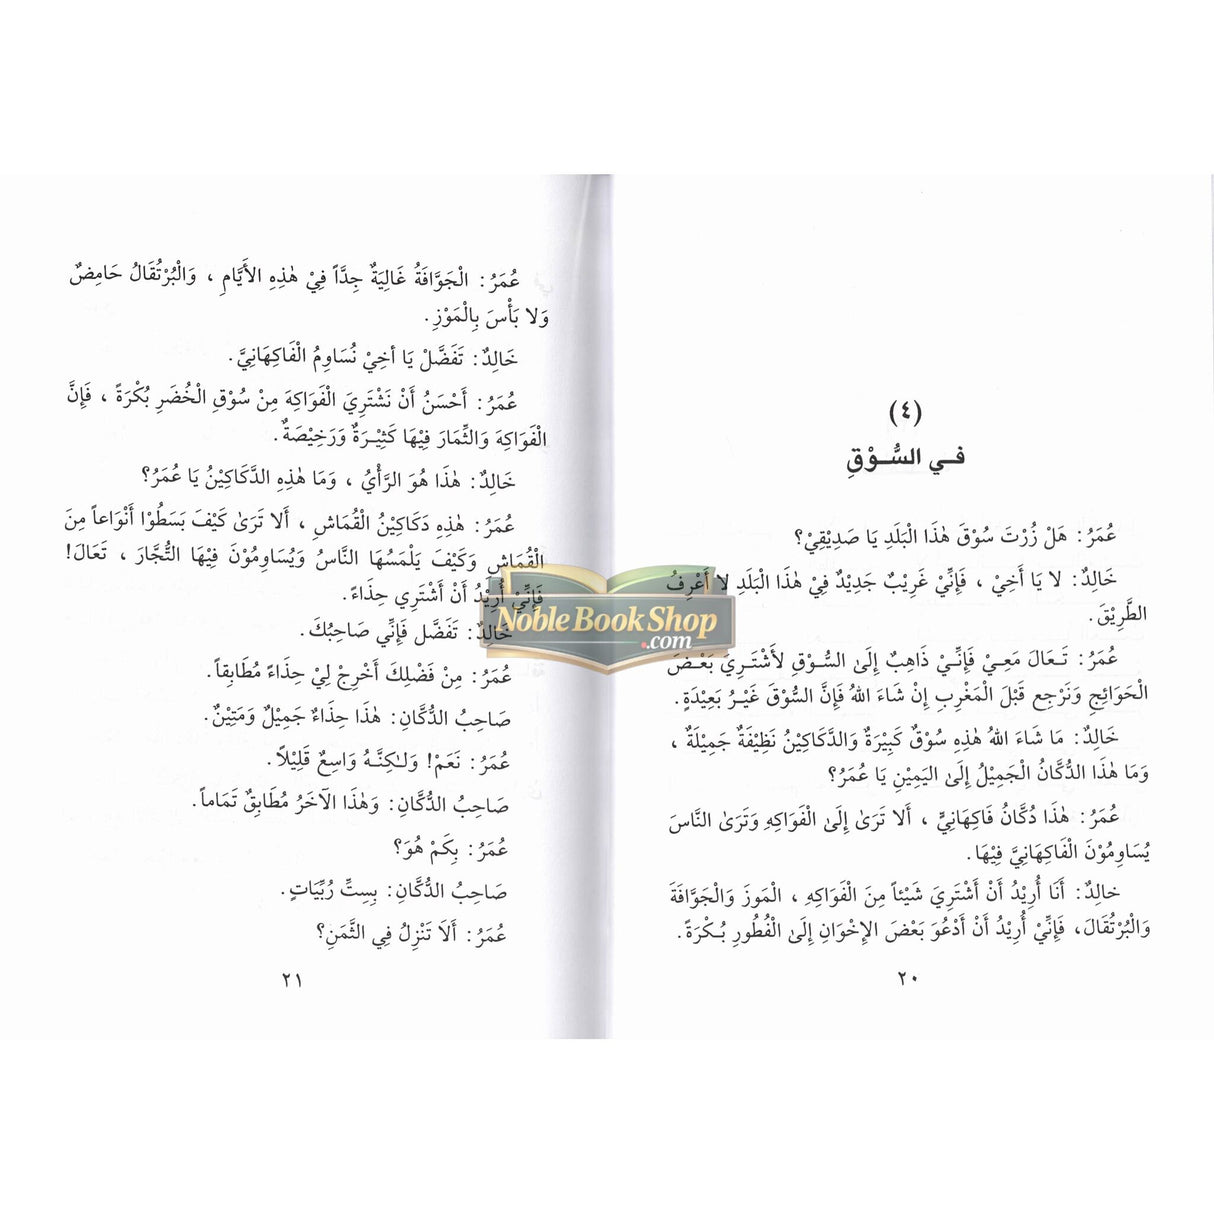 (٤)
فـي السُّـوْقِ
عُمَرُ: هَلْ زُرْتَ سُوْقَ هٰذَا الْبَلَدِ يَا صَدِيْقِيْ؟
خَالِدٌ: لا يَا أَخِيْ ، فَإِنِّيْ غَرِيْبٌ جَدِيْدٌ فِيْ هٰذَا الْبَلَدِ لا أَعْرِفُ
الطَّرِيْقَ.
عُمَرُ: تَـعَالَ مَعِـيْ فَإِنِّـيْ ذَاهِبٌ إِلَىٰ السُّـوْقِ لأَشْتَـرِيَ بَعْـضَ
الْحَوَائِجِ وَنَرْجِع قَبْلَ الْمَغْرِبِ إِنْ شَاءَ اللهُ فَإِنَّ السُّوْقَ غَيْـرُ بَعِيْدَةٍ.
خَالِدٌ: مَا شَاءَ اللهُ هٰذِهِ سُوْقٌ كَبِيْرَةٌ وَالدَّكَاكِيْنُ نَظِيْفَةٌ جَمِيْلَةٌ ،
وَمَا هٰذَا الدُّكَّانُ الْجَمِيْلُ إِلَىٰ اليَمِيْنِ يَا عُمَرُ؟
عُمَرُ: هٰذَا دُكَّانُ فَاكِهَانِيٍّ ، أَلا تَرَىٰ إِلَىٰ الْفَوَاكِهِ وَتَرَىٰ النَّاسَ
يُسَاوِمُوْنَ الْفَاكِهَانِيَّ فِيْهَا.
خالِدٌ: أَنَا أُرِيْدُ أَنْ أَشْتَرِيَ شَيْئاً مِنَ الْفَوَاكِهِ ، الْمَوزَ وَالْجَوَّافَةَ
وَالْبُرْتقَالَ، فَإِنِّيْ أُرِيْدُ أَنْ أَدْعُوَ بَعْضَ الإِخْوَانِ إِلَىٰ الْفُطُورِ بُـكْرَةً.
٢٠
عُمَرُ: الْجَوَّافَةُ غَالِيَةٌ جِدَّاً فِيْ هٰذِهِ الأَيَّامِ ، وَالْبُرْتُقَالُ حَامِضٌ
وَلا بَأْسَ بِالْمَوْزِ.
خَالِدٌ: تَفَضَّلْ يَا أخِيْ نُسَاوِمُ الْفَاكِهَانِيَّ.
عُمَرُ: أَحْسَنُ أَنْ نَشْتَرِيَ الْفَوَاكِهَ مِنْ سُوْقِ الْخُضَرِ بُكْرَةً ، فَإِنَّ
الْفَوَاكِهَ وَالثِّمَارَ فِيْهَا كَثِيْـرَةٌ وَرَخِيْصَةٌ.
خَالِدٌ: هٰذَا هُوَ الرَّأْيُ ، وَمَا هٰذِهِ الدَّكَاكِيْنُ يَا عُمَرُ؟
عُمَرُ: هٰذِهِ دَكَاكِيْنُ الْقُمَاشِ ، أَلا تَرَىٰ كَيْفَ بَسَطُوْا أَنْوَاعاً مِنَ
الْقُمَاشِ وَكَيْفَ يَلْمَسُهَا النَّاسُ وَيُسَاوِمُوْنَ فِيْهَا التُّجَّارَ ، تَعَالَ!
فَإِنِّيْ أُرِيْدُ أَنْ أَشْتَرِي حِذَاءً.
خَالِدٌ: تَفَضَّل فَإِنِّي صَاحِبُكَ.
عُمَرُ: مِنْ فَضْلِكَ أَخْرِجْ لِيْ حِذَاءً مُطَابِقاً.
صَاحِبُ الدُّكَّانِ: هٰذَا حِذَاءٌ جَمِيْلٌ وَمَتِيْنٌ.
عُمَرُ: نَعَمْ! وَلـٰكِنَّـهُ وَاسِعٌ قَلِيْلاً.
صَاحِبُ الدُّكَّانِ: وَهٰذَا الآخَرُ مُطَابِقٌ تَمَاماً.
عُمَرُ: بِكَمْ هُوَ؟
صَاحِبُ الدُّكَّانِ: بِستِّ رُبِّيَاتٍ.
عُمَرُ: أَلاَ تَنْزِلُ فِي الثَّمَنِ؟
٢١
Noble Book Shop
.com